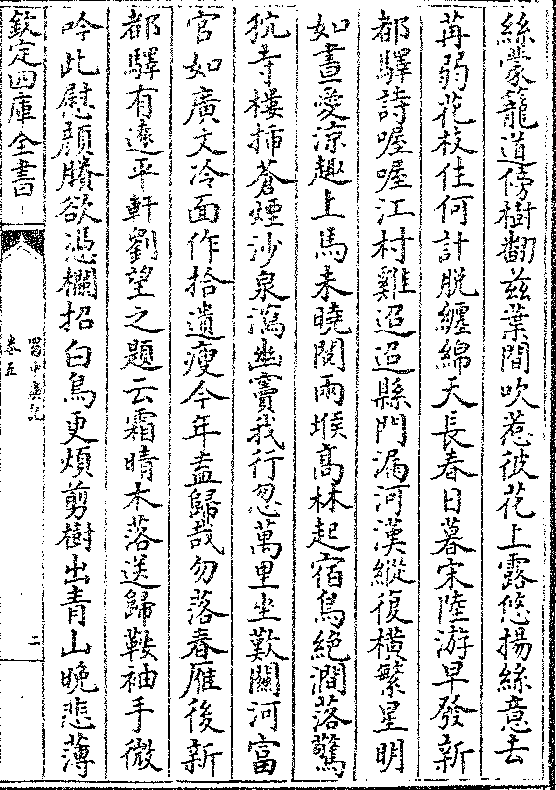 絲蒙蘢道傍樹翻兹葉間吹惹彼花上露悠揚絲意去
苒弱花枝住何計脱纏綿天長春日暮宋陸游早發新
都驛詩喔喔江村雞迢迢縣門漏河漢縱復横繁星明
如晝愛凉趣上馬未曉閲兩堠高林起宿鳥絶澗落驚
狖寺樓插蒼煙沙泉瀉幽竇我行忽萬里坐歎關河富
官如廣文冷面作拾遺瘦今年盍歸哉勿落春雁後新
都驛有逺平軒劉望之題云霜晴木落送歸鞍袖手微
吟此慰顔賸欲憑欄招白鳥更煩剪樹出青山晚悲薄
欽定四庫全書
蜀中廣記
卷五
二